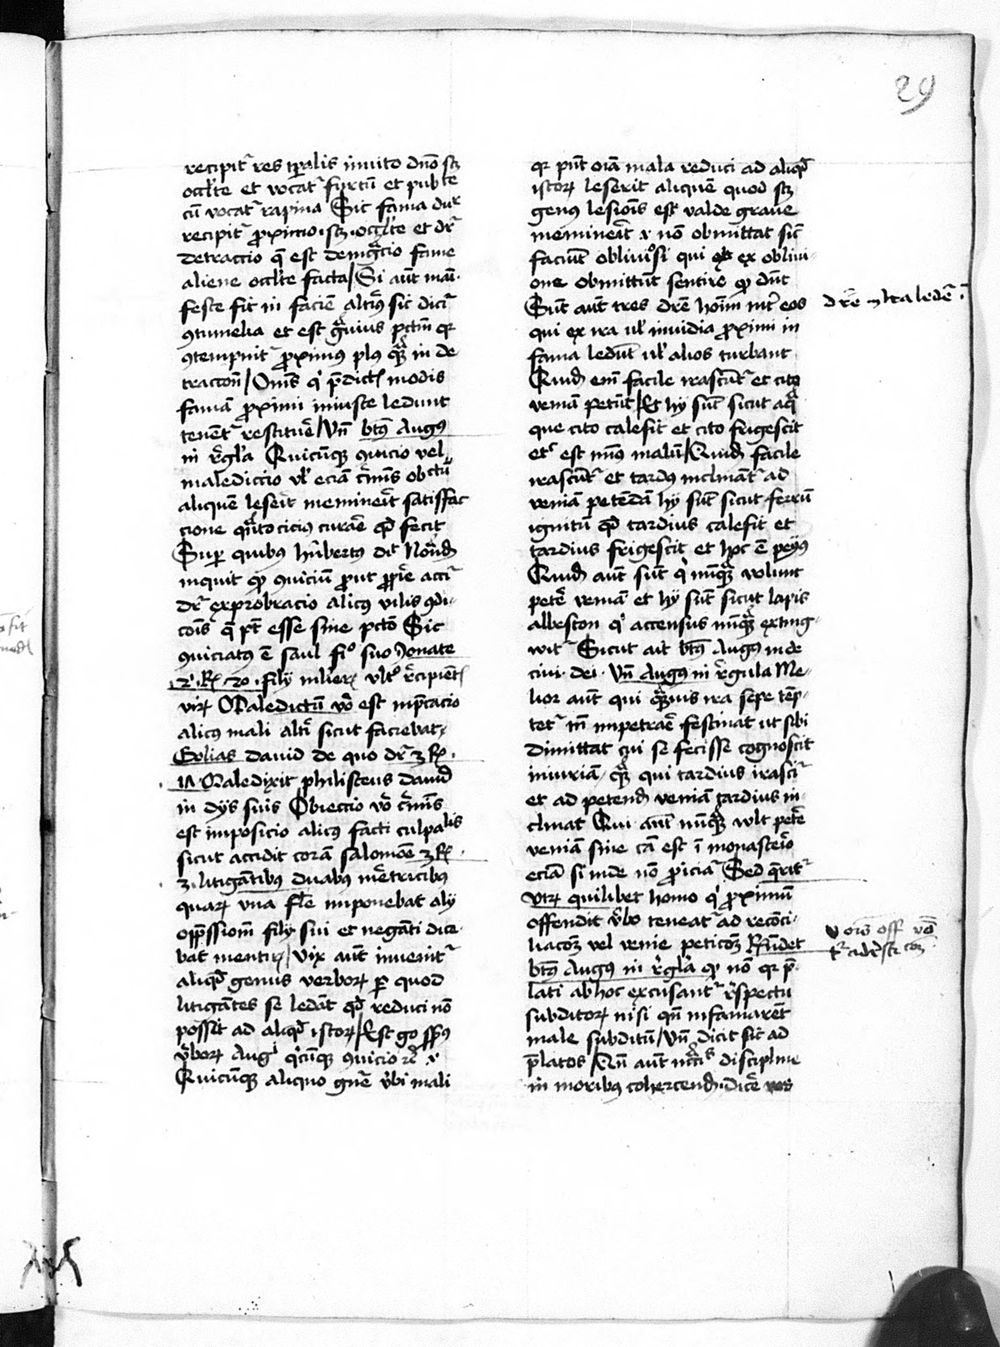 29
recipit̄ res tp̄alis inuito dn̄o sc̄
occl̄te et vocat̄ furtū et pub̄ce
cū vocat̄ rapina Sic fama dur
recipit̄ proximo sc̄ occl̄te et dr̄
detractio q̄ est denig̃cio fame
aliene occl̄te facta / Si aūt maī
feste fit in faciē alteri9 sic dicī
9tumelia et est g̃uius pctm̄ qr
9tempnit̄ proximus plus q̃ꝫ in de
tractōn / Om̄s q̇ p̄dict modis
famā proximi iniuste ledunt
tenēt̄ restituē / Vn̄ bt̄9 Aug9
in r̄gl̄a Quicūqꝫ 9uicio vel
maledictio vl̄ eciā c̄mīs obctū
aliquē leserit meminerit satisfac
cione q̃ntocicius curāe qd̄ fecit
Suꝑ quibus hūbertus dīt Notād̄
inquit qꝫ 9uiciū prout ꝓprie accī
dr̄ exprobracio alicuꝰ vilis 9di
cōis q̄ pt̄ esse sine pctō Sic
9uiciatus ē Saul fi° suo Jonate
.2°. Rꝫ 20. fily mlieris vlt° r̄cipient
virꝫ Maledictū v̊o est inp̄cacio
alicuꝰ mali alt̄i sicut faciebat
Golias dauid de quo dr̄ 3 Rꝫ.
17. Maledixit philisteus dauid
in dijs suis Obiectio v̊o c̄mīs
est imposicio alicuꝰ facti culpabilis
sicut accidit corā salomōe 3 Rꝫ
3. litigātibus duabus mēt̄ricibus
quarꝫ vna fl̄e imponebat alij
opp̄ssiom̄ filij sui et negāti dice
bat mentirꝫ / vix aūt inuenit̄
aliqd̄ genus verborꝫ ꝑ quod
litigātes se ledāt qd̄ reduci nō
possit ad aliqd̄ istorꝫ / Est g̊o sēs9
v̊borꝫ Augⁱ q̇cūqꝫ 9uicio rc̄
Quicūqꝫ aliquo gn̄e v̊bi mali
qr pn̄t oīa mala reduci ad aliqd̄
istorꝫ leserit aliquē quod sc̄
genus lesiōis est valde graue
meminerit et nō obmittat sic̄
faciūt obliuiosi qui ex obliui
one obmittūt sentire qꝫ dn̄t
Sūt aūt tres dr̄e hoīm int̄ eos
qui ex ira vl̄ inuidia proximi in
fama ledūt vl̄ alios turbant
Quid̄ em̄ facile irascūt̄ et cito
veniā petūt / Et hij sūt sicut aq̃
que cito calefit et cito frigescit
et̄ est min9 malū / Quid̄ facile
irascūt̄ et tardius inclināt̄ ad
veniā petēdā hij sūt sicut ferrū
ignitū qd̄ tardius calefit et
tardius frigescit et hoc ē peius
Quid̄ aūt sūt q̇ nūq̃ꝫ volunt
petē veniā et hij sūt sicut lapis
albeston q̇ accensus nūq̃ꝫ exting
wit̄ Sicut ait bt̄9 Aug9 in de
ciui. dei. Vn̄ Aug9 in r̄gula Me
lior aūt qui q̃ꝫuis ira sepe tēp
tet̄ tn̄ impetrāe festinat ut sibi
dimittat cui se fecisse cognoscit
iniuriā, q̃ꝫ qui tardius irascī
et ad petend̄ veniā tardius in
clinat Qui aūt nūq̃ꝫ wlt petē
veniā sine cā est ī monasterio
eciā si inde nō ꝓiciat̄ Sed q̄rit̄
Vtrꝫ quilibet homo q̇ proximū
offendit v̊bo teneat̄ ad recōci
liacōꝫ vel venie peticōꝫ Rn̄det
bt̄9 Aug9 in r̄gl̄a qꝫ nō qr p̄
lati ab hoc excusant̄ r̄spectu
subditorꝫ nisi qn̄ infamarēt
male subditū / Vn̄ dicit sic̄ ad
p̄latos / Qn̄ aūt nc̄citas discipline
in moribus cohercend̄ dicē vos
dr̄e
oīs off